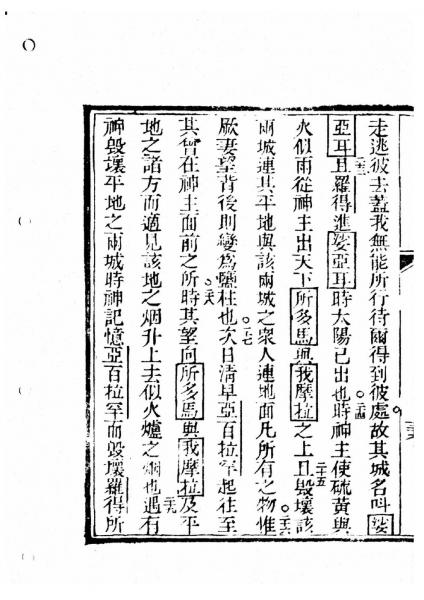 走逃彼去蓋我無能所行待爾得到彼處故其城名呌娑
亞耳二十三且羅得進娑亞耳時太陽已出也二十四時神主使硫黃與
火似雨從神主出天下所多馬與我摩拉之上二十五且毀壞該
兩城連其平地與該兩城之衆人連地面凡所有之物二十六惟
厥妻望背後則變爲鹽柱也二十七次日淸早亞百拉罕起往至
其曾在神主面前之所二十八時其望向所多馬與我摩拉及平
地之諸方而適見該地之烟升上去似火爐之烟也二十九遇有
神毀壞平地之兩城時神記憶亞百拉罕而毀壞羅得所